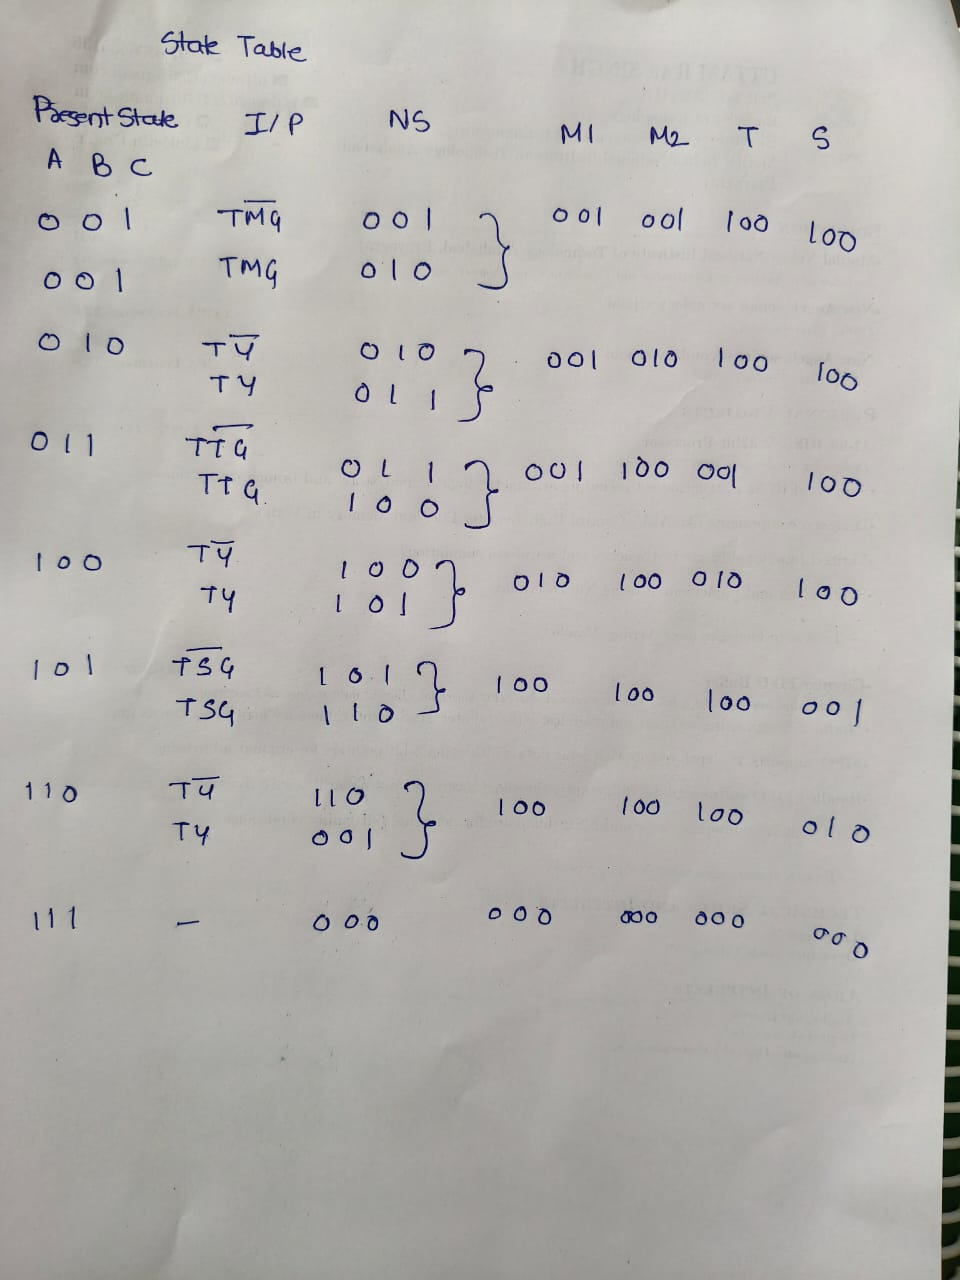 State Table
Present State I/P NS M1 M2 T S
A B C
0 0 1 T̅M̅G̅ 0 0 1 } 001 001 100 100
0 0 1 TMG 0 1 0
0 1 0 T̅Y̅ 0 1 0 } 001 010 100 100
TY 0 1 1
0 1 1 T̅T̅G̅ 0 1 1 } 001 100 001 100
TTG. 1 0 0
1 0 0 T̅Y̅ 1 0 0 } 010 100 010 100
TY 1 0 1
1 0 1 T̅S̅G̅ 1 0 1 } 100 100 100 001
TSG 1 1 0
1 1 0 T̅Y̅ 110 } 100 100 100 010
TY 001
111 – 000 000 000 000 000